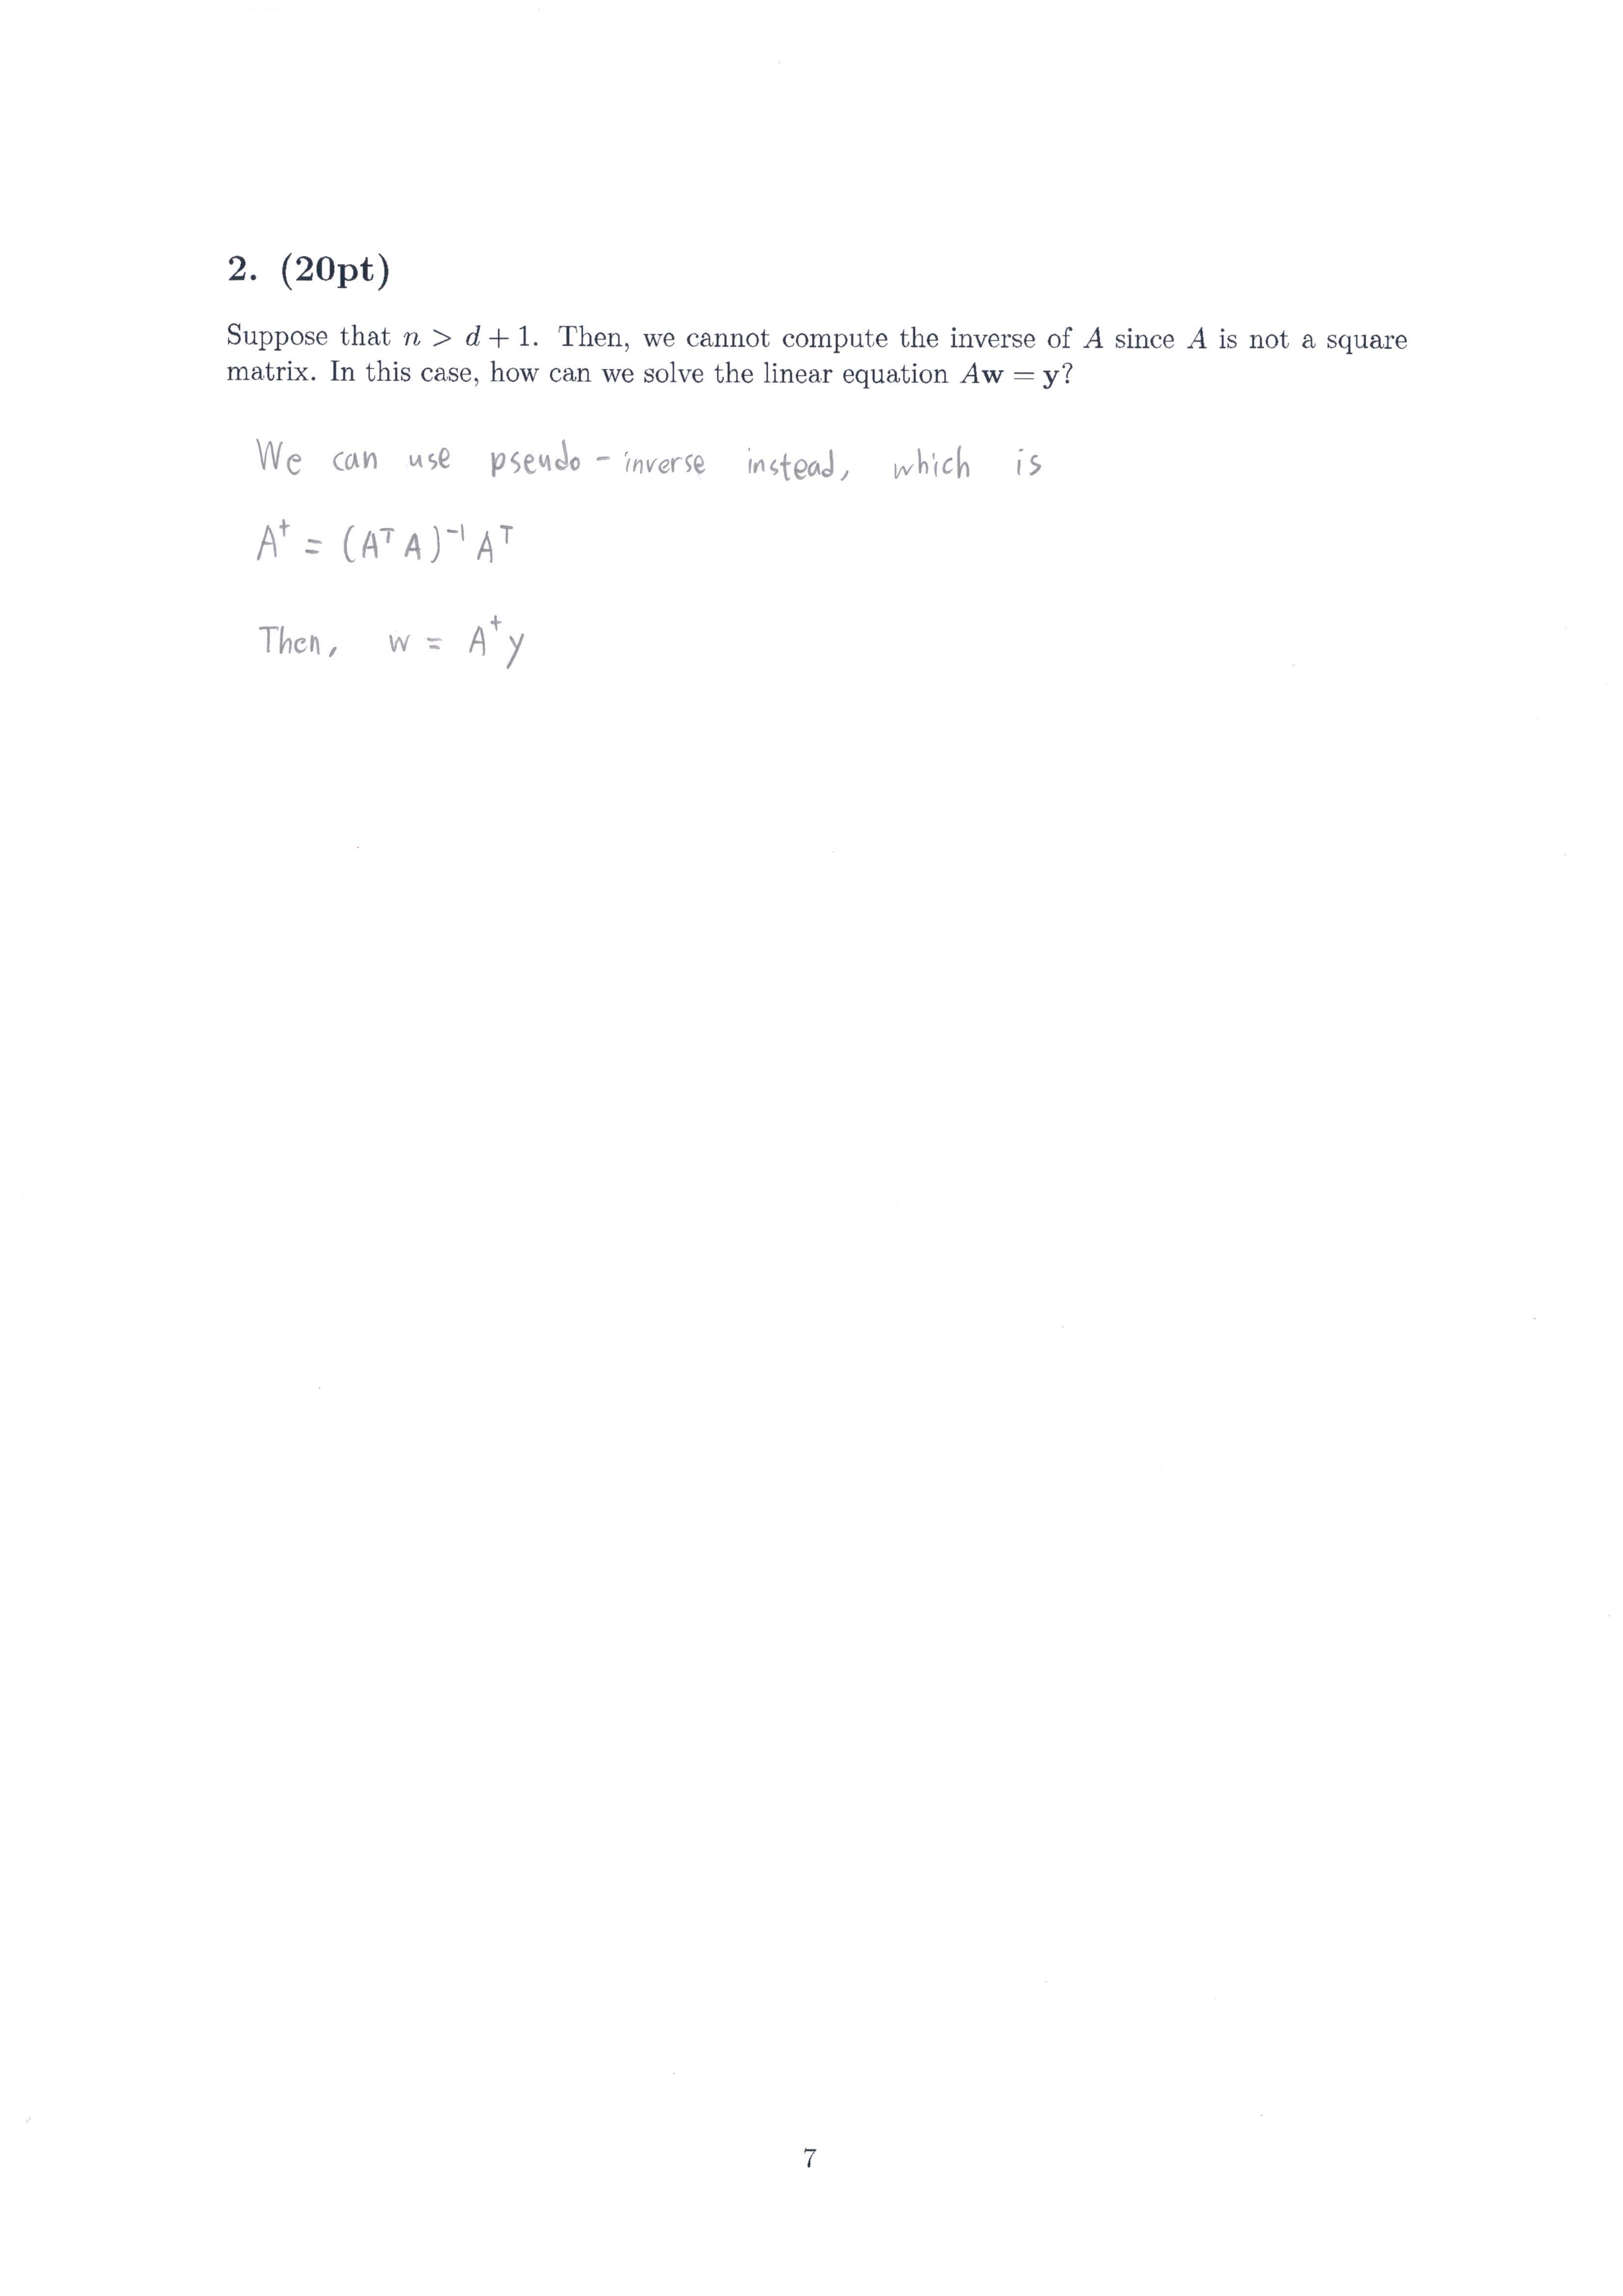 2. (20pt)
Suppose that n > d + 1. Then, we cannot compute the inverse of A since A is not a square
matrix. In this case, how can we solve the linear equation Aw = y?
We can use pseudo-inverse instead, which is
A⁺ = (AᵀA)⁻¹Aᵀ
Then, w = A⁺y
7